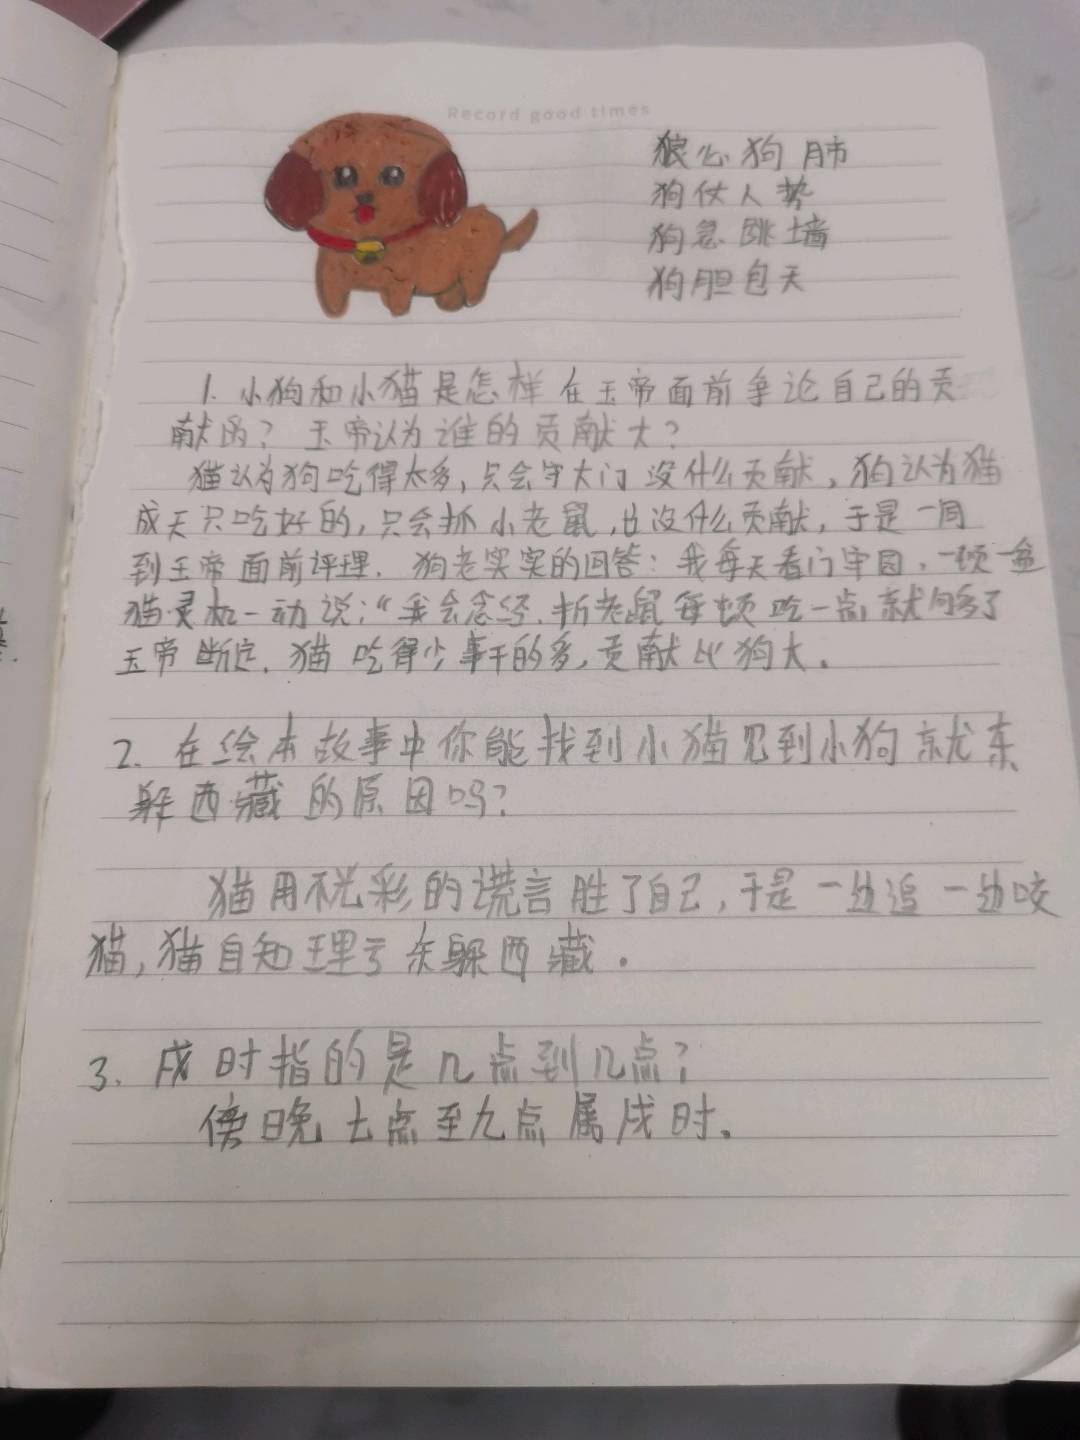 Record good times
狼心狗肺
狗仗人势
狗急跳墙
狗胆包天
1. 小狗和小猫是怎样在玉帝面前争论自己的贡
献的? 玉帝认为谁的贡献大?
猫认为狗吃得太多,只会守大门没什么贡献,狗认为猫
成天只吃好的,只会抓小老鼠,也没什么贡献,于是一同
到玉帝面前评理. 狗老实实的回答:我每天看门牢园,一顿一盒
猫灵机一动说:“我会念经,抓老鼠每顿吃一点就够了
玉帝断定,猫吃得少事干的多,贡献比狗大.
2. 在绘本故事中你能找到小猫见到小狗就东
躲西藏的原因吗?
猫用不光彩的谎言胜了自己,于是一边追一边咬
猫,猫自知理亏东躲西藏.
3. 戌时指的是几点到几点?
傍晚七点至九点属戌时.